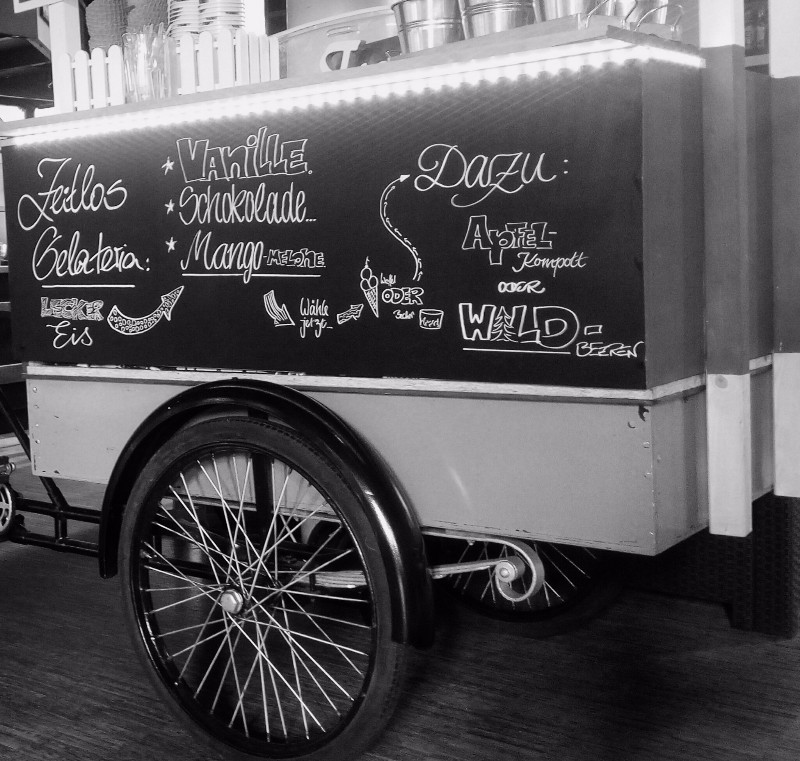 Zeitlos
Gelateria:
LECKER
Eis
VANILLE.
Schokolade...
Mango-MELONE
Wähle
jetzt
Waffel
ODER
Becher
Dazu:
APFEL-
Kompott
ODER
WALD-
BEEREN